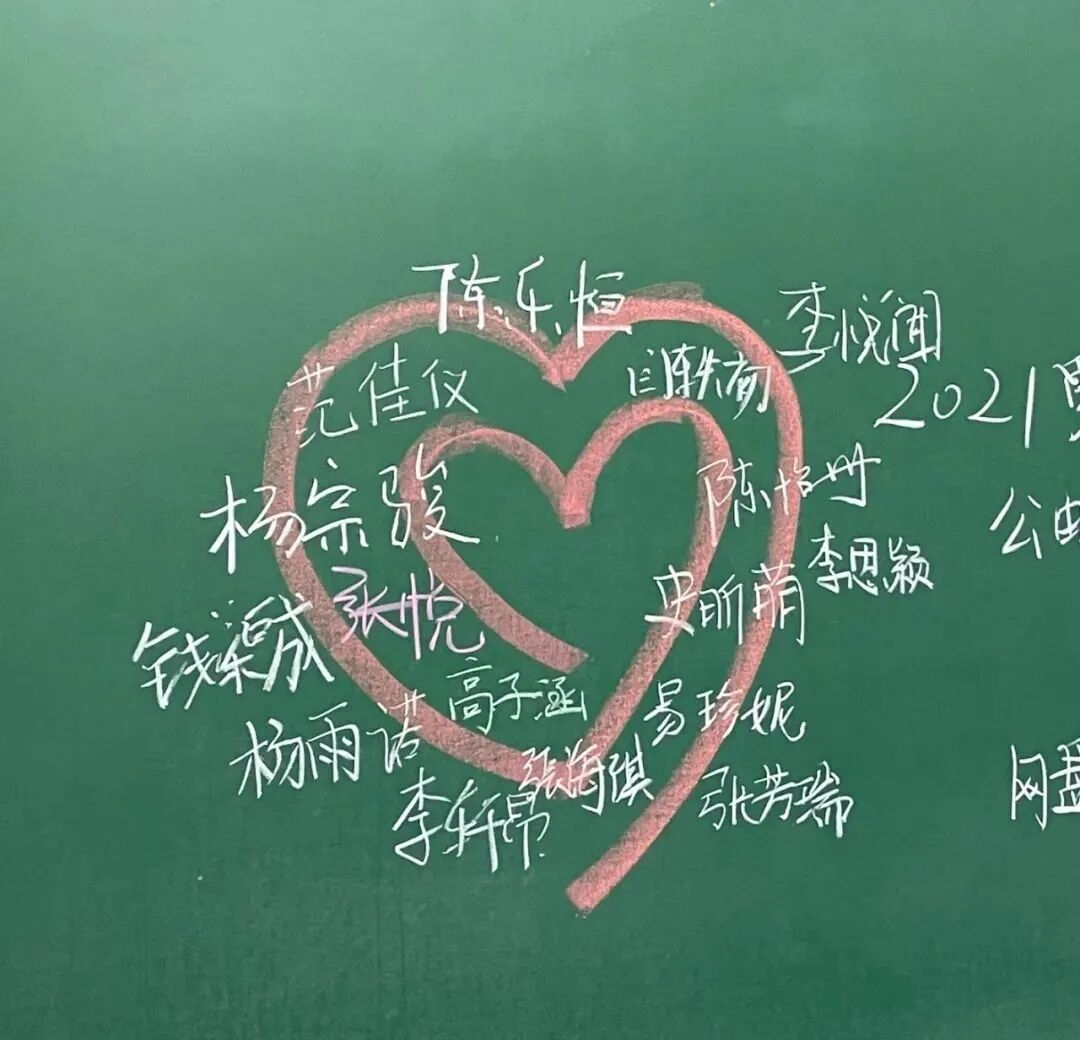 陈乐恒
李悦闻
范佳仪
2021
杨宗骏
陈怡丹
公
李思颖
史昕萌
张悦
钱 成
高子涵
易珍妮
杨雨诺
张海琪
张芳瑞
网盘
李轩昂